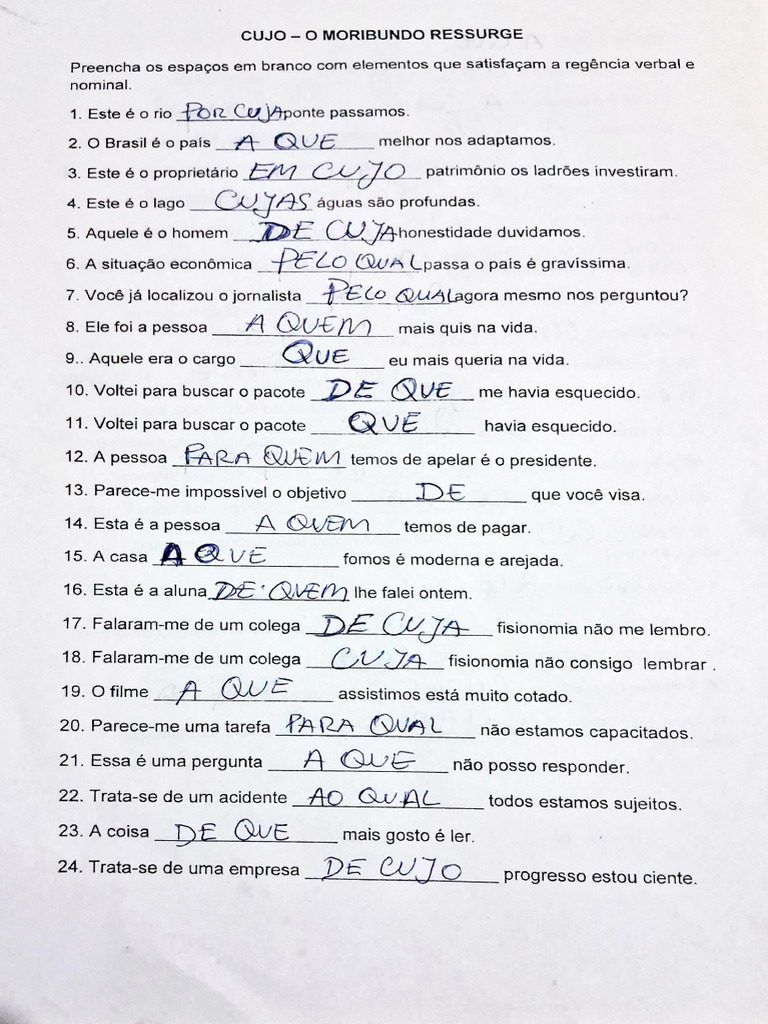 CUJO – O MORIBUNDO RESSURGE
Preencha os espaços em branco com elementos que satisfaçam a regência verbal e
nominal.
1. Este é o rio POR CUJA ponte passamos.
2. O Brasil é o país A QUE melhor nos adaptamos.
3. Este é o proprietário EM CUJO patrimônio os ladrões investiram.
4. Este é o lago CUJAS águas são profundas.
5. Aquele é o homem DE CUJA honestidade duvidamos.
6. A situação econômica PELO QUAL passa o país é gravíssima.
7. Você já localizou o jornalista PELO QUAL agora mesmo nos perguntou?
8. Ele foi a pessoa A QUEM mais quis na vida.
9.. Aquele era o cargo QUE eu mais queria na vida.
10. Voltei para buscar o pacote DE QUE me havia esquecido.
11. Voltei para buscar o pacote QUE havia esquecido.
12. A pessoa PARA QUEM temos de apelar é o presidente.
13. Parece-me impossível o objetivo DE que você visa.
14. Esta é a pessoa A QUEM temos de pagar.
15. A casa A QUE fomos é moderna e arejada.
16. Esta é a aluna DE QUEM lhe falei ontem.
17. Falaram-me de um colega DE CUJA fisionomia não me lembro.
18. Falaram-me de um colega CUJA fisionomia não consigo lembrar .
19. O filme A QUE assistimos está muito cotado.
20. Parece-me uma tarefa PARA QUAL não estamos capacitados.
21. Essa é uma pergunta A QUE não posso responder.
22. Trata-se de um acidente AO QUAL todos estamos sujeitos.
23. A coisa DE QUE mais gosto é ler.
24. Trata-se de uma empresa DE CUJO progresso estou ciente.